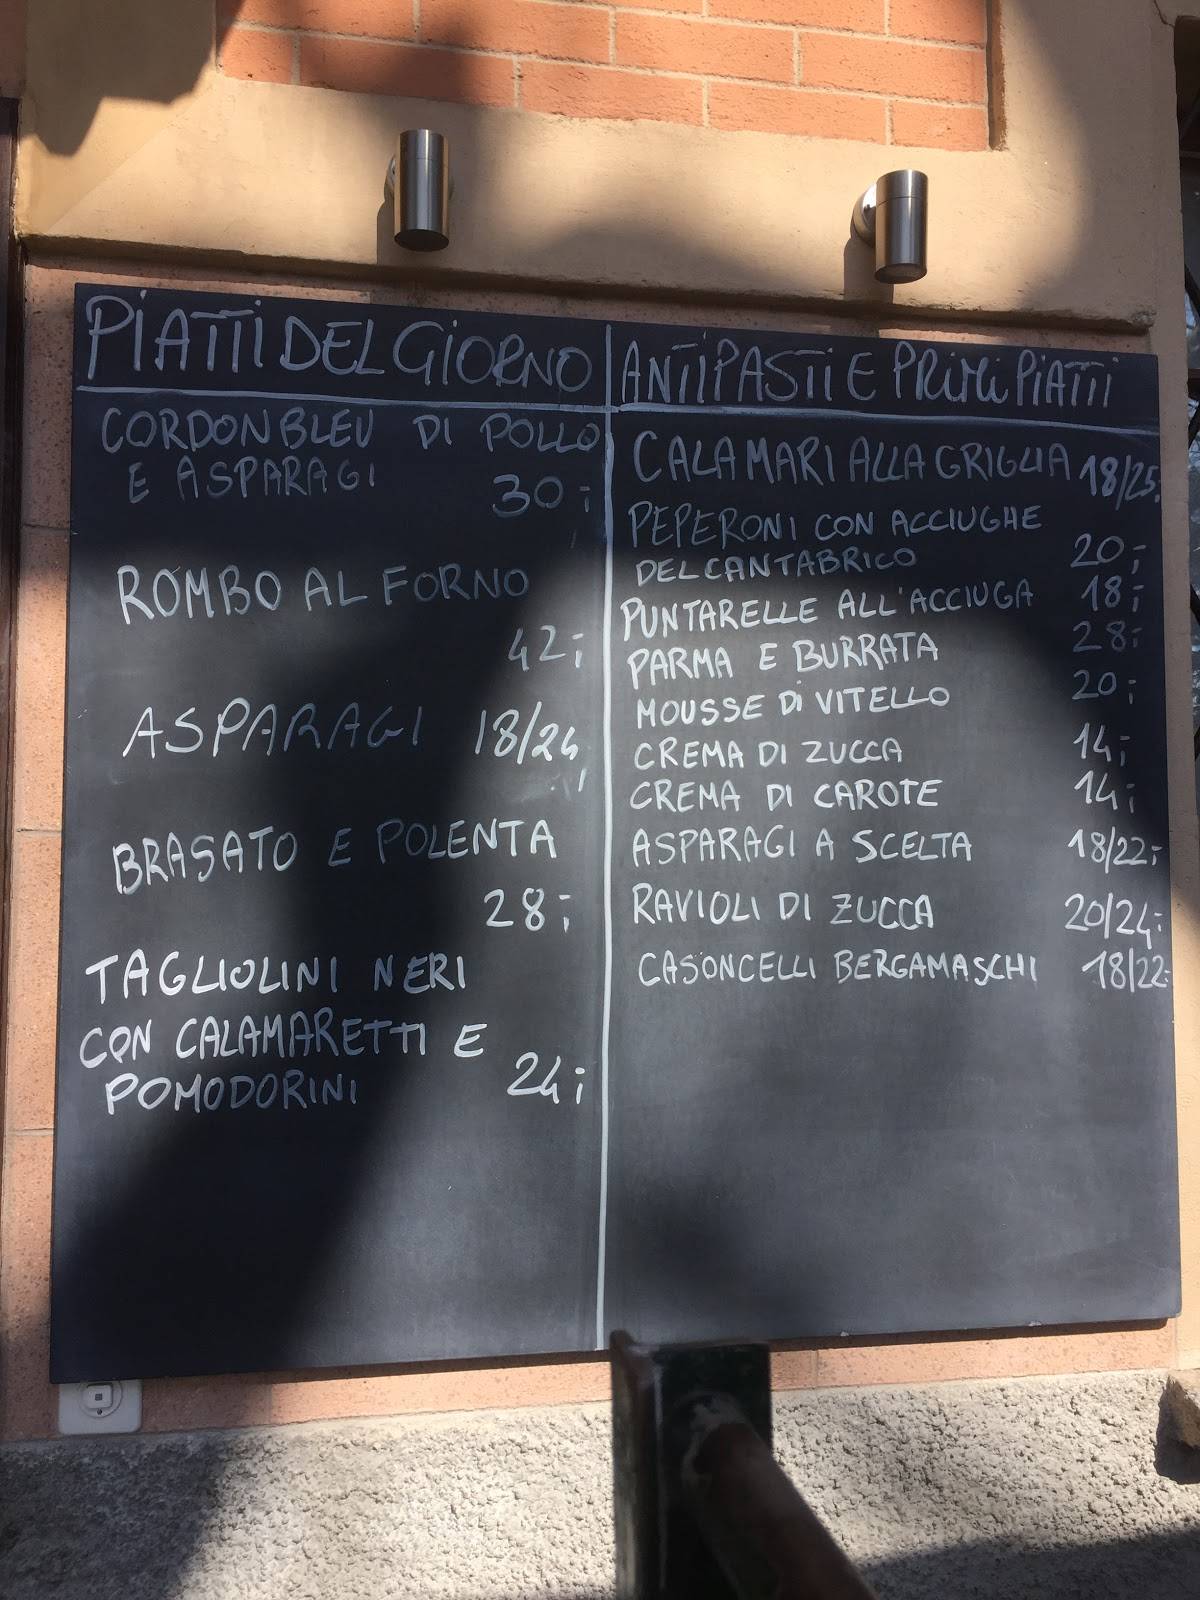 PIATTI DEL GIORNO
CORDON BLEU DI POLLO
E ASPARAGI 30.-
ROMBO AL FORNO
42.-
ASPARAGI 18/24
BRASATO E POLENTA
28.-
TAGLIOLINI NERI
CON CALAMARETTI E
POMODORINI 24.-
ANTIPASTI E PRIMI PIATTI
CALAMARI ALLA GRIGLIA 18/25.-
PEPERONI CON ACCIUGHE
DEL CANTABRICO 20.-
PUNTARELLE ALL'ACCIUGA 18.-
PARMA E BURRATA 28.-
MOUSSE DI VITELLO 20.-
CREMA DI ZUCCA 14.-
CREMA DI CAROTE 14.-
ASPARAGI A SCELTA 18/22.-
RAVIOLI DI ZUCCA 20/24.-
CASONCELLI BERGAMASCHI 18/22.-